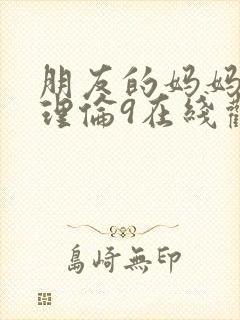 朋友的妈妈
理倫9在綫
島崎無印